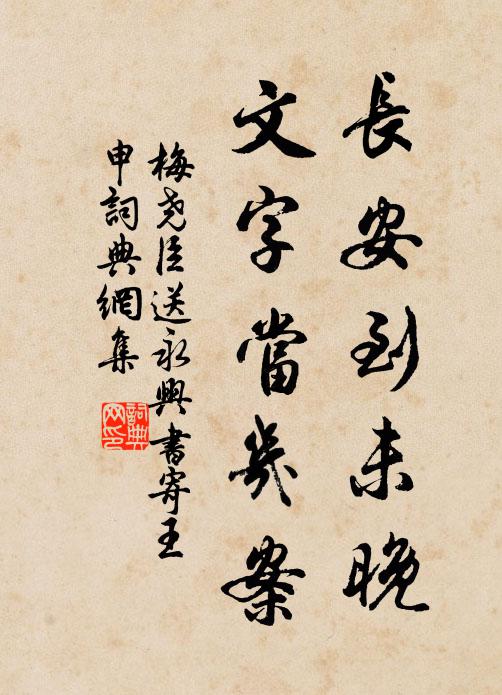 長安到未晚
文字當幾案
梅堯臣送永興書寄王
申詞典網集
詞典网印